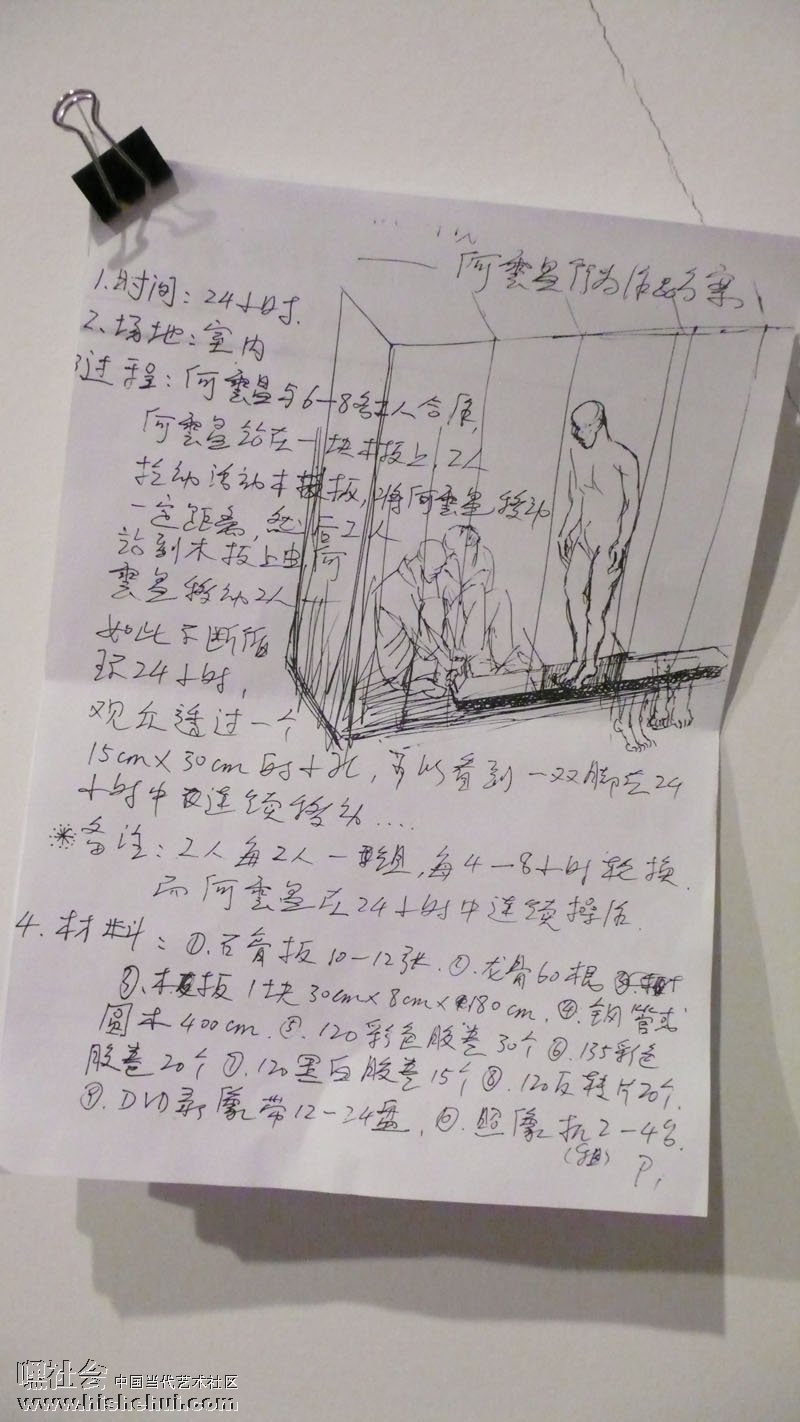 —— 何雲昌行为作品方案
1.时间：24小时.
2.场地：室内
3过程：何雲昌与6—8名工人合作,
何雲昌站在一块木板上,2人
拉动活动木板,将何雲昌移动
一定距离,然后2人
站到木板上由何
雲昌移动2人—
如此不断循
环24小时,
观众透过一个
15cm×30cm的小孔,可以看到一双脚在24
小时中连续移动....
※备注：工人每2人一组,每4—8小时轮换.
而何雲昌在24小时中连续操作.
4.材料：①.石膏板10—12张.②.龙骨60根
③.木板1块30cm×8cm×180cm.④.钢管或
圆木400cm.⑤.120彩色胶卷30个⑥.135彩色
胶卷20个⑦.120黑白胶卷15个⑧.120反转片20个.
⑨.DVD录像带12—24盘,⑩.照像机2—4台.
P1
嘿社会 中国当代艺术社区
www.hishehui.com